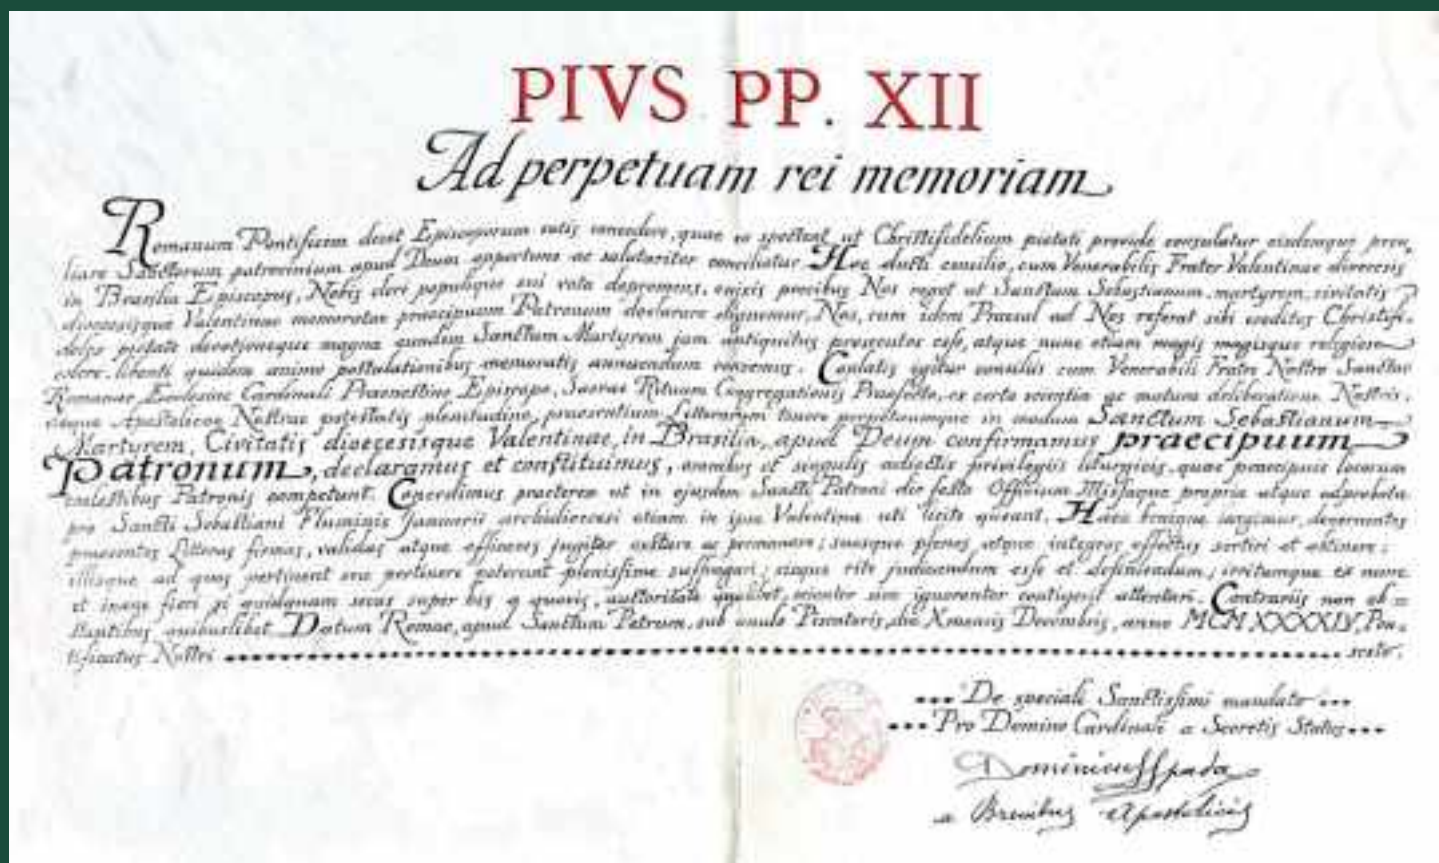 PIVS PP. XII
Ad perpetuam rei memoriam
Romanum Pontificem decet Episcoporum votis concedere, quae eo spectent ut Christifidelium pietati provide consulatur eisdemque
liare Sanctorum patrocinium apud Deum opportune ac salutariter concilietur. Hoc ducti consilio, cum Venerabilis Frater Valentinae dioecesis
in Brasilia Episcopus, Nobis cleri populique sui vota depromens, enixis precibus Nos roget ut Sanctum Sebastianum, martyrem, civitatis
dioecesisque Valentinae memoratae praecipuum Patronum declarare dignemur, Nos, cum idem Praesul ad Nos referat sibi creditos Christifi-
deles pietate devotioneque magna eundem Sanctum Martyrem jam antiquitus prosecutos esse, atque nunc etiam magis magisque religiose
colere, libenti quidem animo postulationibus memoratis annuendum censemus. Conlatis igitur consiliis cum Venerabili Fratre Nostro Sanctae
Romanae Ecclesiae Cardinali Praenestino Episcopo, Sacrae Rituum Congregationis Praefecto, ex certa scientia ac matura deliberatione Nostris,
deque Apostolicae Nostrae potestatis plenitudine, praesentium Litterarum tenore perpetuumque in modum Sanctum Sebastianum
Martyrem, Civitatis dioecesisque Valentinae, in Brasilia, apud Deum confirmamus praecipuum
Patronum, declaramus et constituimus, omnibus et singulis adjectis privilegiis liturgicis, quae praecipuis locorum
caelestibus Patronis competunt. Concedimus praeterea ut in ejusdem Sancti Patroni die festo Officium Missaque propria atque adprobata
pro Sancti Sebastiani Fluminis Januarii archidioecesi etiam in ipsa Valentina uti licite queant. Haec benigne largimur, decernentes
praesentes Litteras firmas, validas atque efficaces jugiter exstare ac permanere; suosque plenos atque integros effectus sortiri et obtinere;
illisque ad quos pertinent seu pertinere poterunt plenissime suffragari; sicque rite judicandum esse et definiendum; irritumque ex nunc
et inane fieri si quidquam secus super his a quovis, auctoritate qualibet, scienter sive ignoranter contigerit attentari. Contrariis non ob=
stantibus quibuslibet. Datum Romae, apud Sanctum Petrum, sub anulo Piscatoris, die X mensis Decembris, anno MCMXXXXIV, Pon-
tificatus Nostri sexto.
De speciali Sanctissimi mandato
Pro Domino Cardinali a Secretis Status
Dominicus Spada
a Brevibus Apostolicis